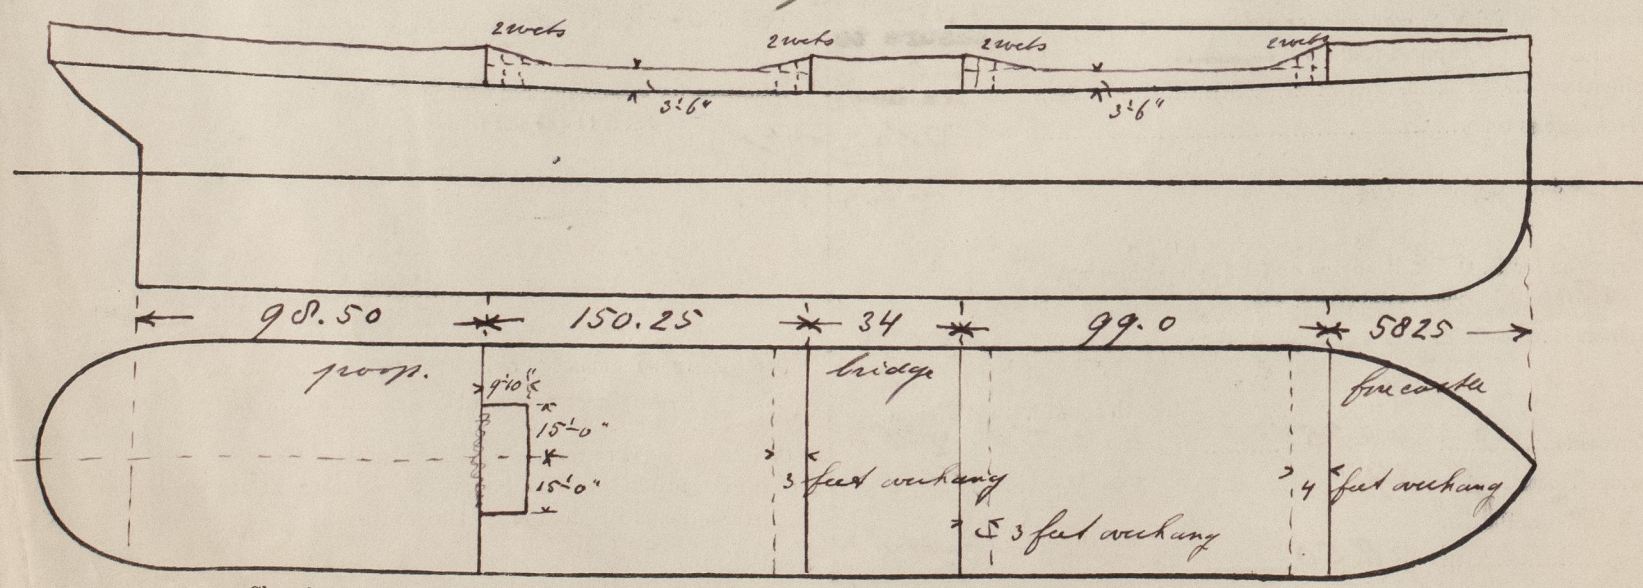 2 webs 2 webs 2 webs 2 webs
3'-6" 3'-6"
98.50 150.25 34 99.0 5825
poop. bridge forecastle
9'10"
15'-0"
15'-0"
3 feet overhang 4 feet overhang
3 feet overhang